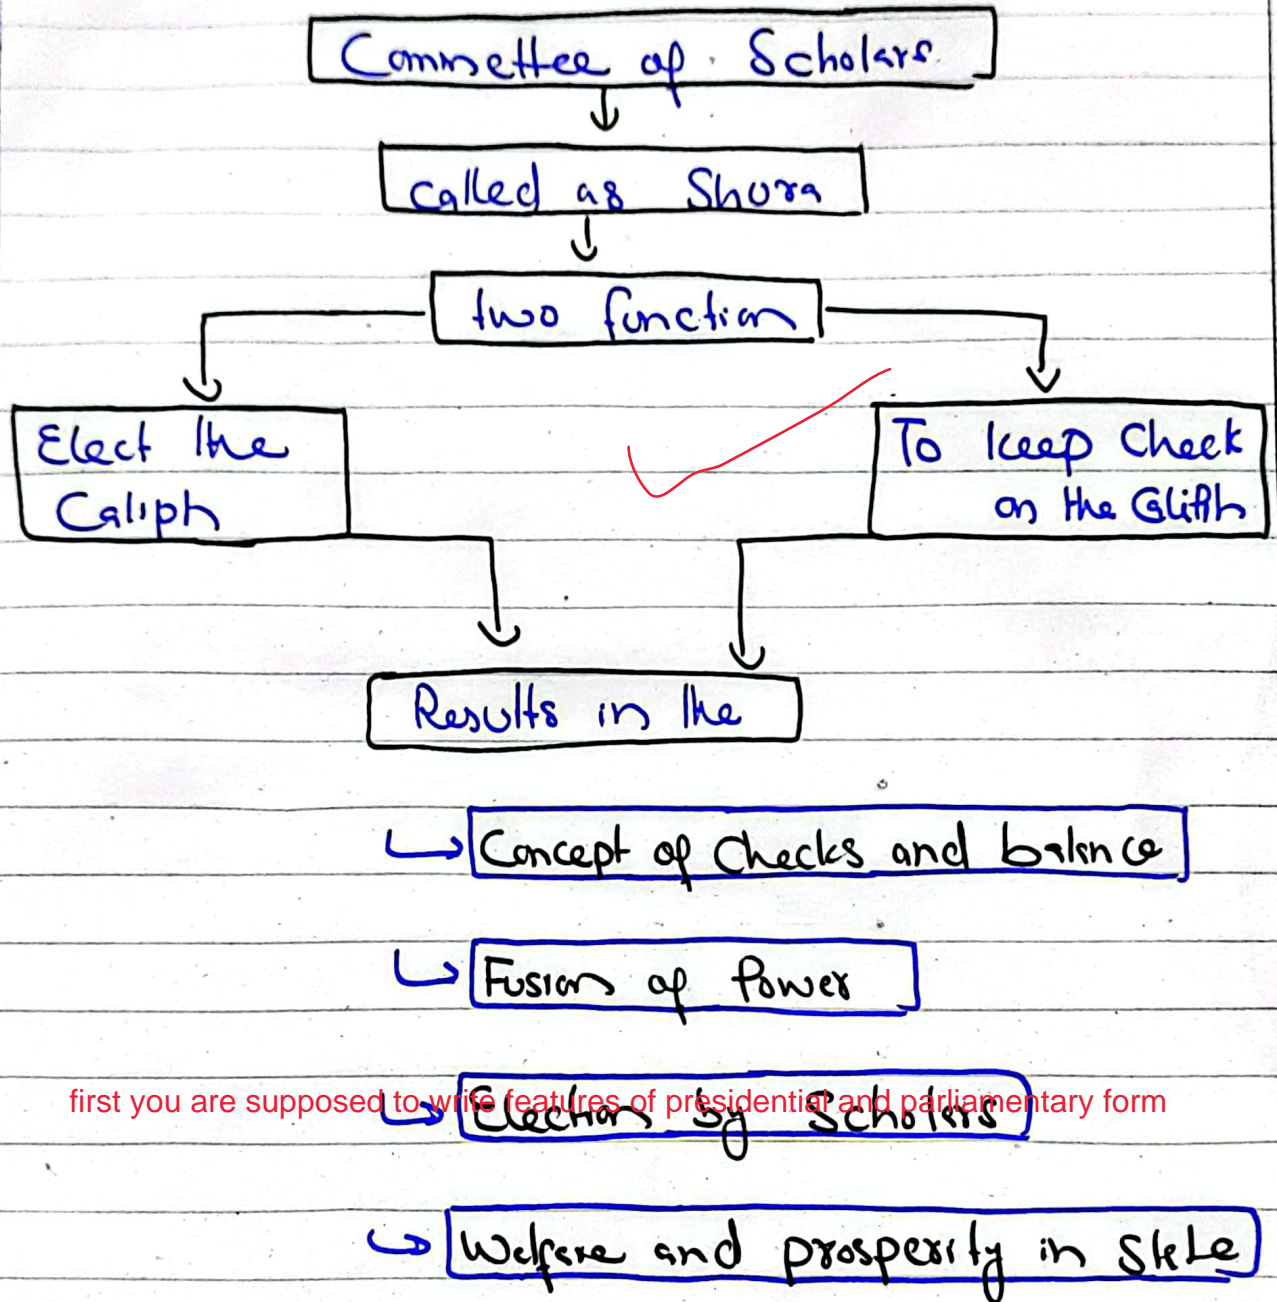 Committee of Scholars
called as Shura
two function
Elect the
Caliph
To keep Check
on the Caliph
Results in the
Concept of Checks and balance
Fusion of Power
first you are supposed to write features of presidential and parliamentary form
Election by Scholars
Welfare and prosperity in State